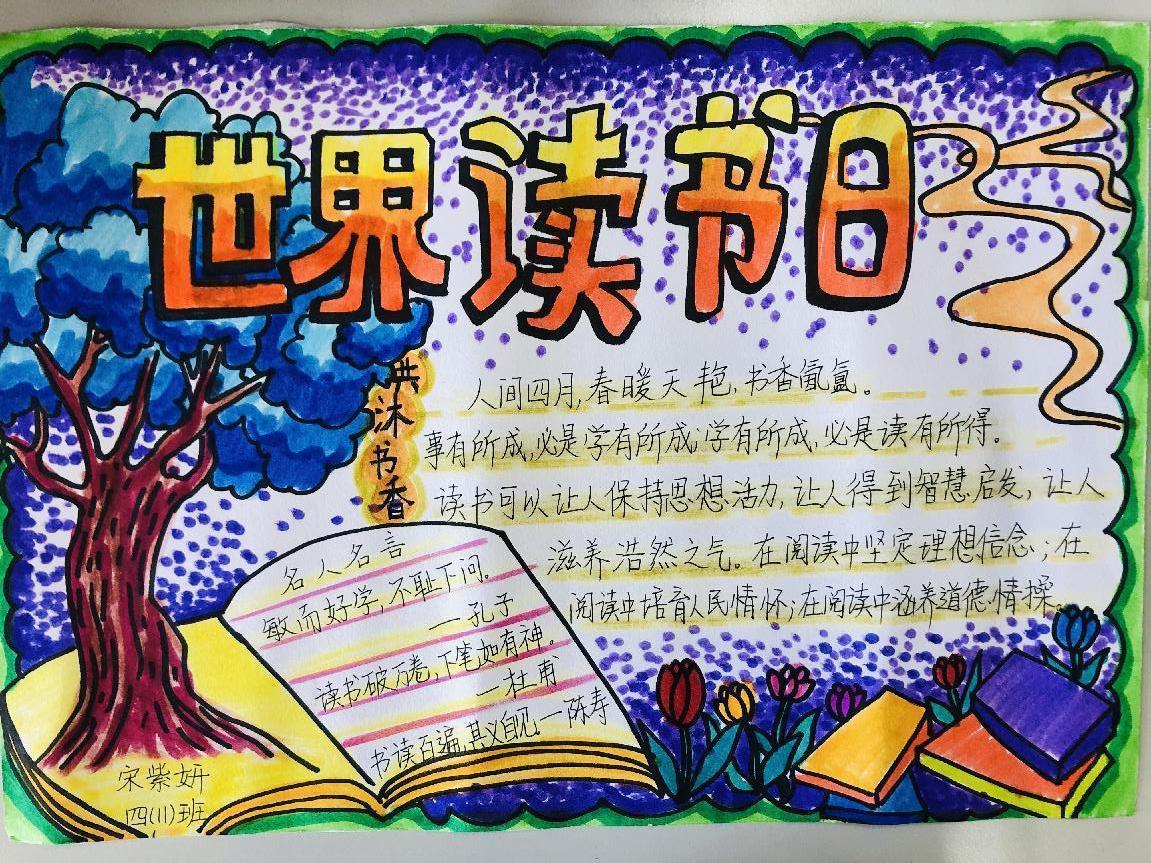 世界读书日
共沐书香
人间四月,春暖天艳,书香氤氲。
事有所成,必是学有所成;学有所成,必是读有所得。
读书可以让人保持思想活力,让人得到智慧启发,让人
滋养浩然之气。在阅读中坚定理想信念;在
阅读中培育人民情怀;在阅读中涵养道德情操。
名人名言
敏而好学,不耻下问。
—孔子
读书破万卷,下笔如有神。
—杜甫
书读百遍,其义自见。—陈寿
宋紫妍
四(11)班